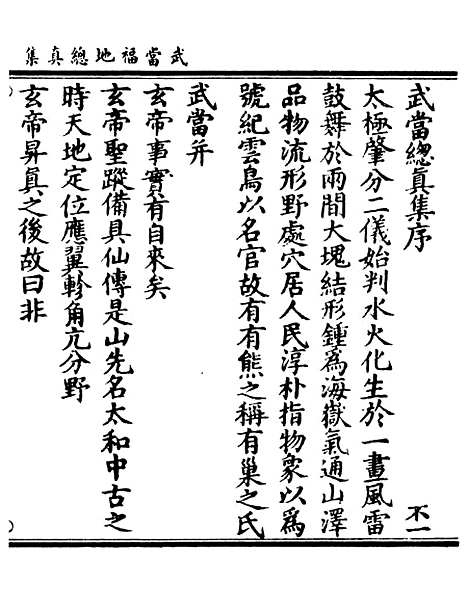 武當福地總真集
武當總真集序
不一
太極肇分二儀始判水火化生於一畫風雷
鼓舞於兩間大塊結形鍾為海嶽氣通山澤
品物流形野處穴居人民淳朴指物象以為
號紀雲鳥以名官故有有熊之稱有巢之氏
武當并
玄帝事實有自來矣
玄帝聖蹤備具仙傳是山先名太和中古之
時天地定位應翼軫角亢分野
玄帝昇真之後故曰非